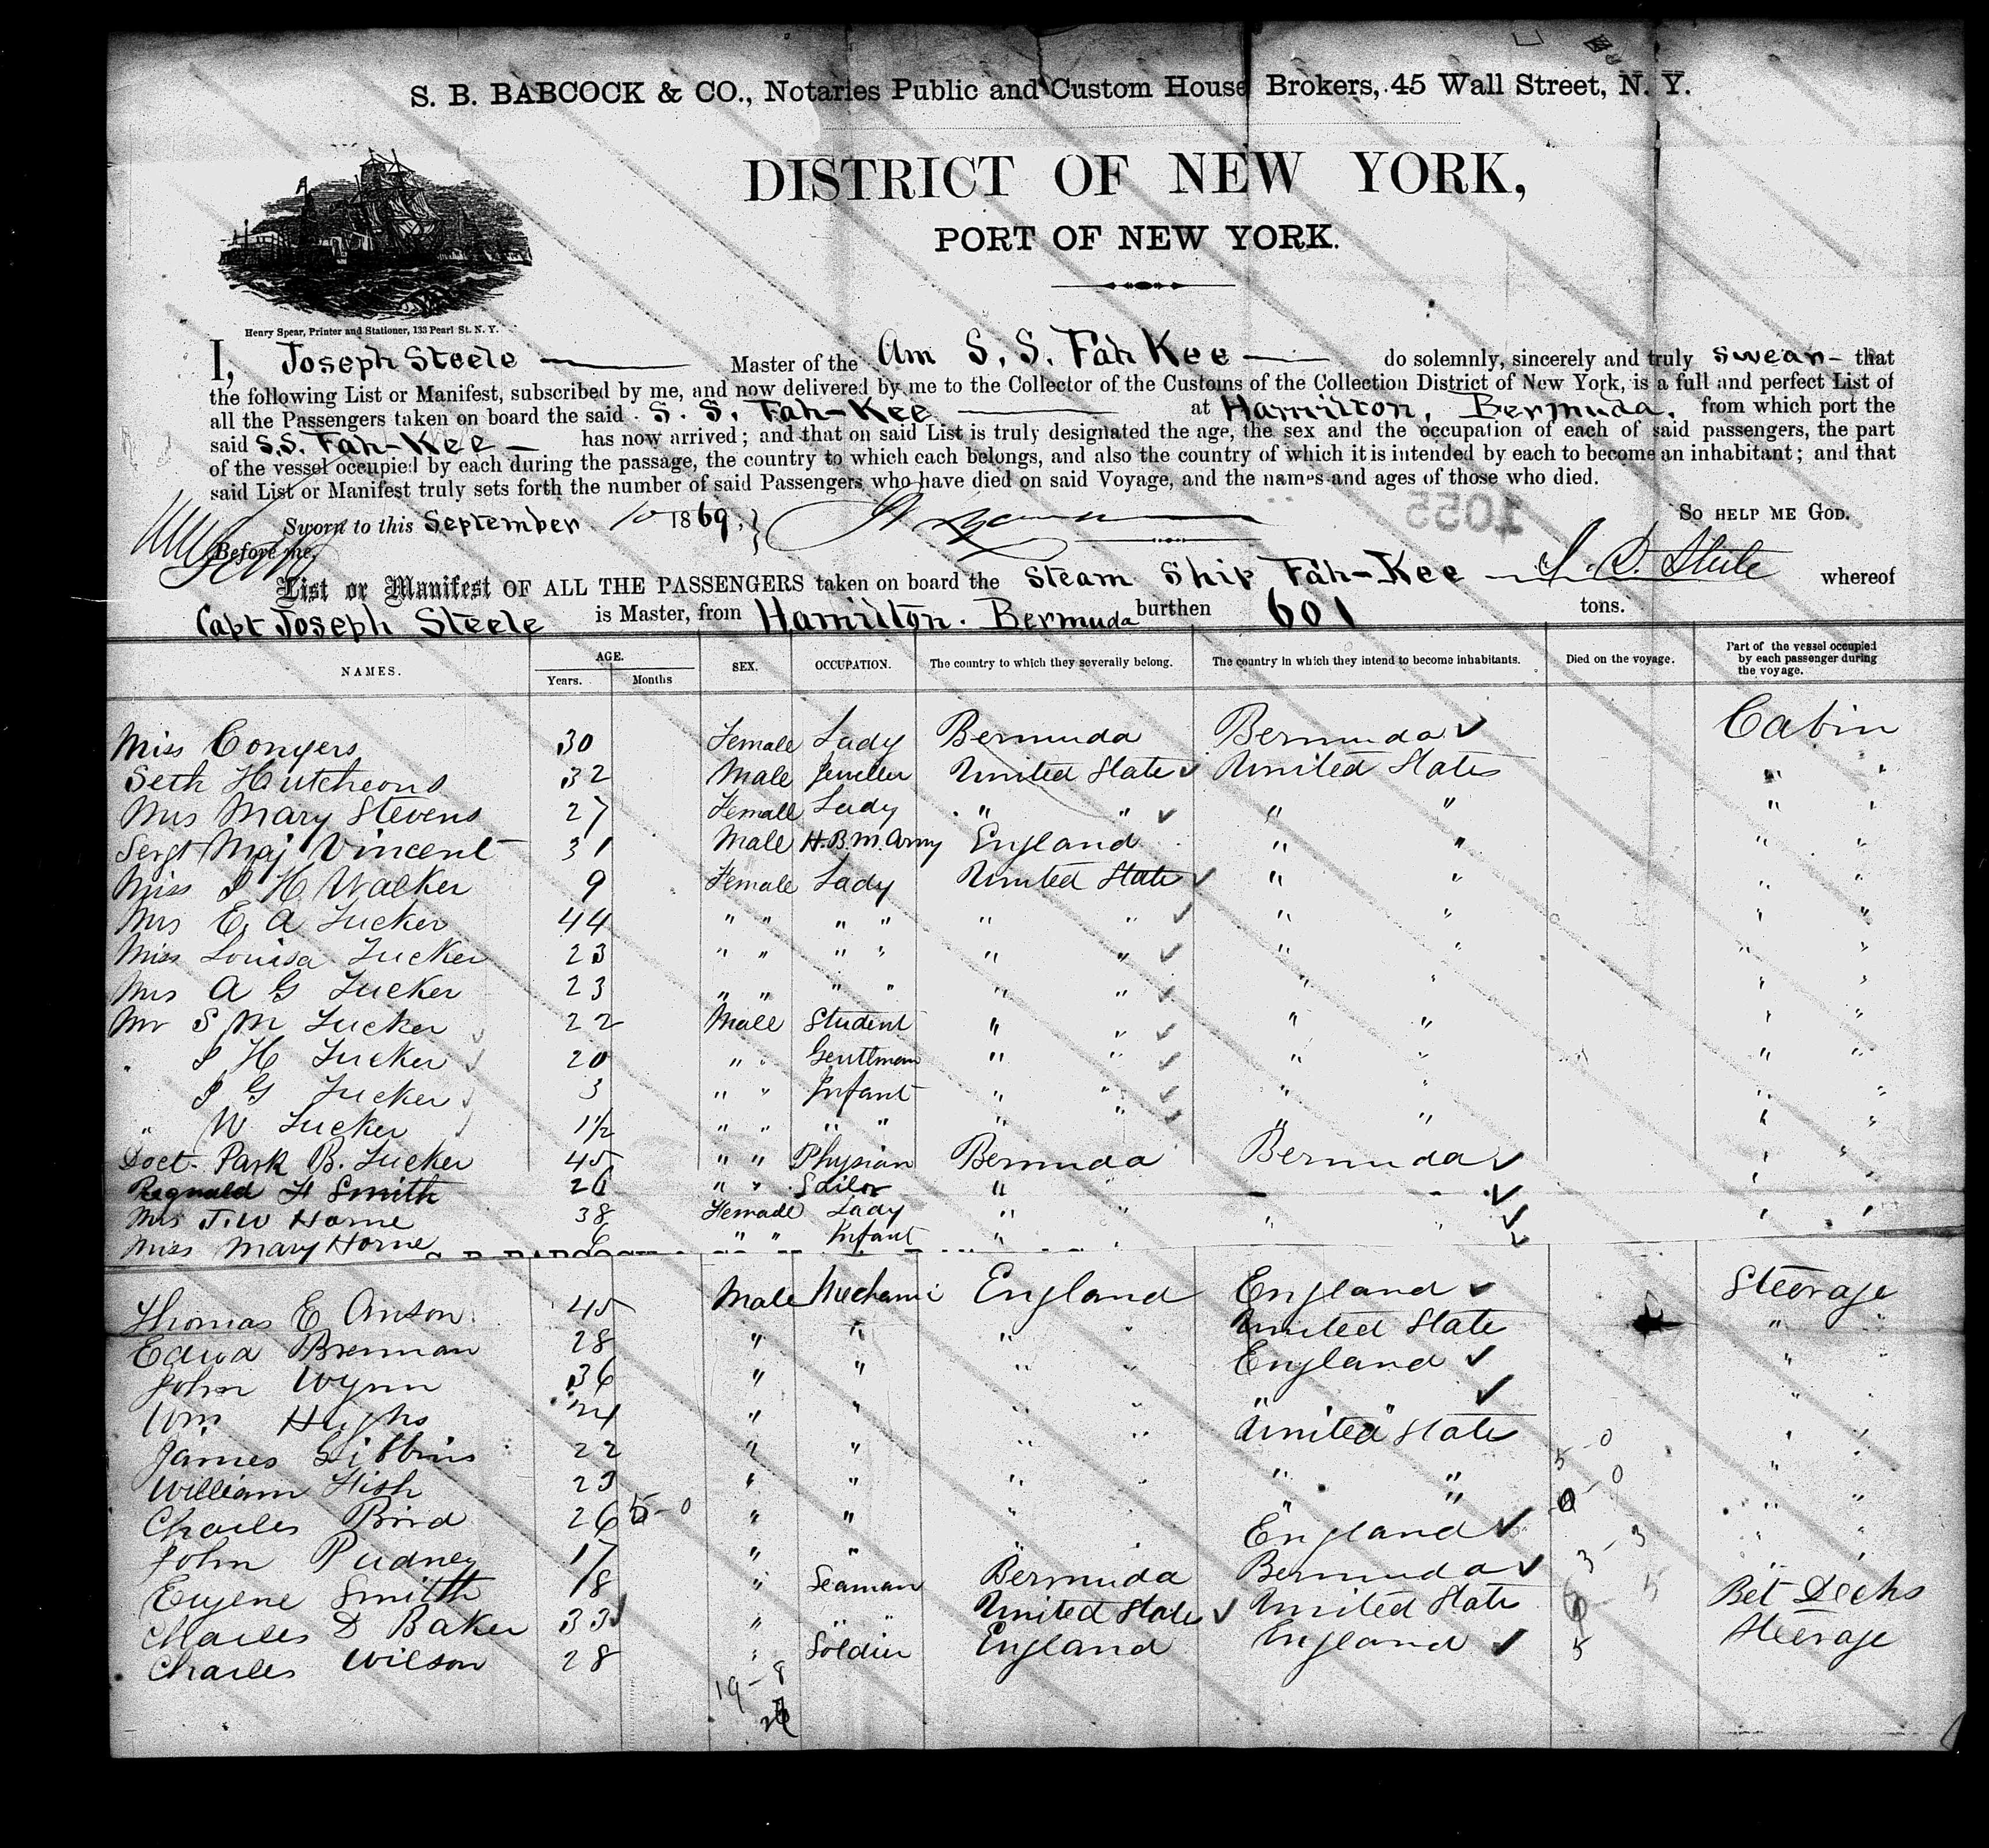 S. B. BABCOCK & CO., Notaries Public and Custom House Brokers, 45 Wall Street, N. Y.
DISTRICT OF NEW YORK,
PORT OF NEW YORK.
Henry Spear, Printer and Stationer, 133 Pearl St. N. Y.
I, Joseph Steele Master of the Am S. S. Fah Kee do solemnly, sincerely and truly swear that
the following List or Manifest, subscribed by me, and now delivered by me to the Collector of the Customs of the Collection District of New York, is a full and perfect List of
all the Passengers taken on board the said S. S. Fah-Kee at Hamilton, Bermuda, from which port the
said S.S. Fah-Kee has now arrived; and that on said List is truly designated the age, the sex and the occupation of each of said passengers, the part
of the vessel occupied by each during the passage, the country to which each belongs, and also the country of which it is intended by each to become an inhabitant; and that
said List or Manifest truly sets forth the number of said Passengers who have died on said Voyage, and the names and ages of those who died.
Sworn to this September 10 1869, 1055 SO HELP ME GOD.
Before me,
List or Manifest OF ALL THE PASSENGERS taken on board the Steam Ship Fah-Kee J. S. Steele whereof
Capt Joseph Steele is Master, from Hamilton. Bermuda burthen 601 tons.
NAMES. AGE. Years. Months SEX. OCCUPATION. The country to which they severally belong. The country in which they intend to become inhabitants. Died on the voyage. Part of the vessel occupied by each passenger during the voyage.
Miss Conyers 30 Female Lady Bermuda Bermuda ✓ Cabin
Seth Hutcheons 32 Male Jeweller United State ✓ United States " "
Mrs Mary Stevens 27 Female Lady " " ✓ " " " "
Sergt Maj Vincent 31 Male H.B.M. Army England " " " "
Miss J H Walker 9 Female Lady United State ✓ " " " "
Mrs E. A Tucker 44 " " " " " " ✓ " " " "
Miss Louisa Tucker 23 " " " " " " ✓ " " " "
Mrs A G Tucker 23 " " " " " " ✓ " " " "
Mr S M Tucker ✓ 22 Male Student " " ✓ " " " "
" J H Tucker ✓ 20 " " Gentlman " " ✓ " " " "
J G Tucker ✓ 3 " " Infant " " ✓ " " " "
" W Tucker ✓ 1½ " " " " " " ✓ " " " "
Doct. Park B. Tucker 45 " " Physian Bermuda Bermuda ✓ " "
Regnald H Smith 26 " " Sailor " ✓ " "
Mrs J. W Horne 38 Female Lady " " " " ✓ " "
Miss Mary Horne 6 " " Infant " " ✓
Thomas E Anson 45 Male Mechani England England ✓ Steerage
Edwd Brennan 28 " " " " United State " "
John Wynn 36 " " " " England ✓ " "
Wm Hughs 24 " " " " " " ✓ " "
James Gibbins 22 " " " " United State " "
William Fish 23 " " " " " " " "
Charles Bird 26 " " " " " " " "
John Pudney 17 " " " " England ✓ " "
Eugene Smith 18 " Seaman Bermuda Bermuda ✓ Bet Decks
Charles D Baker 33 " " " United State ✓ United States Steerage
Charles Wilson 28 " Soldier England England ✓
19-8